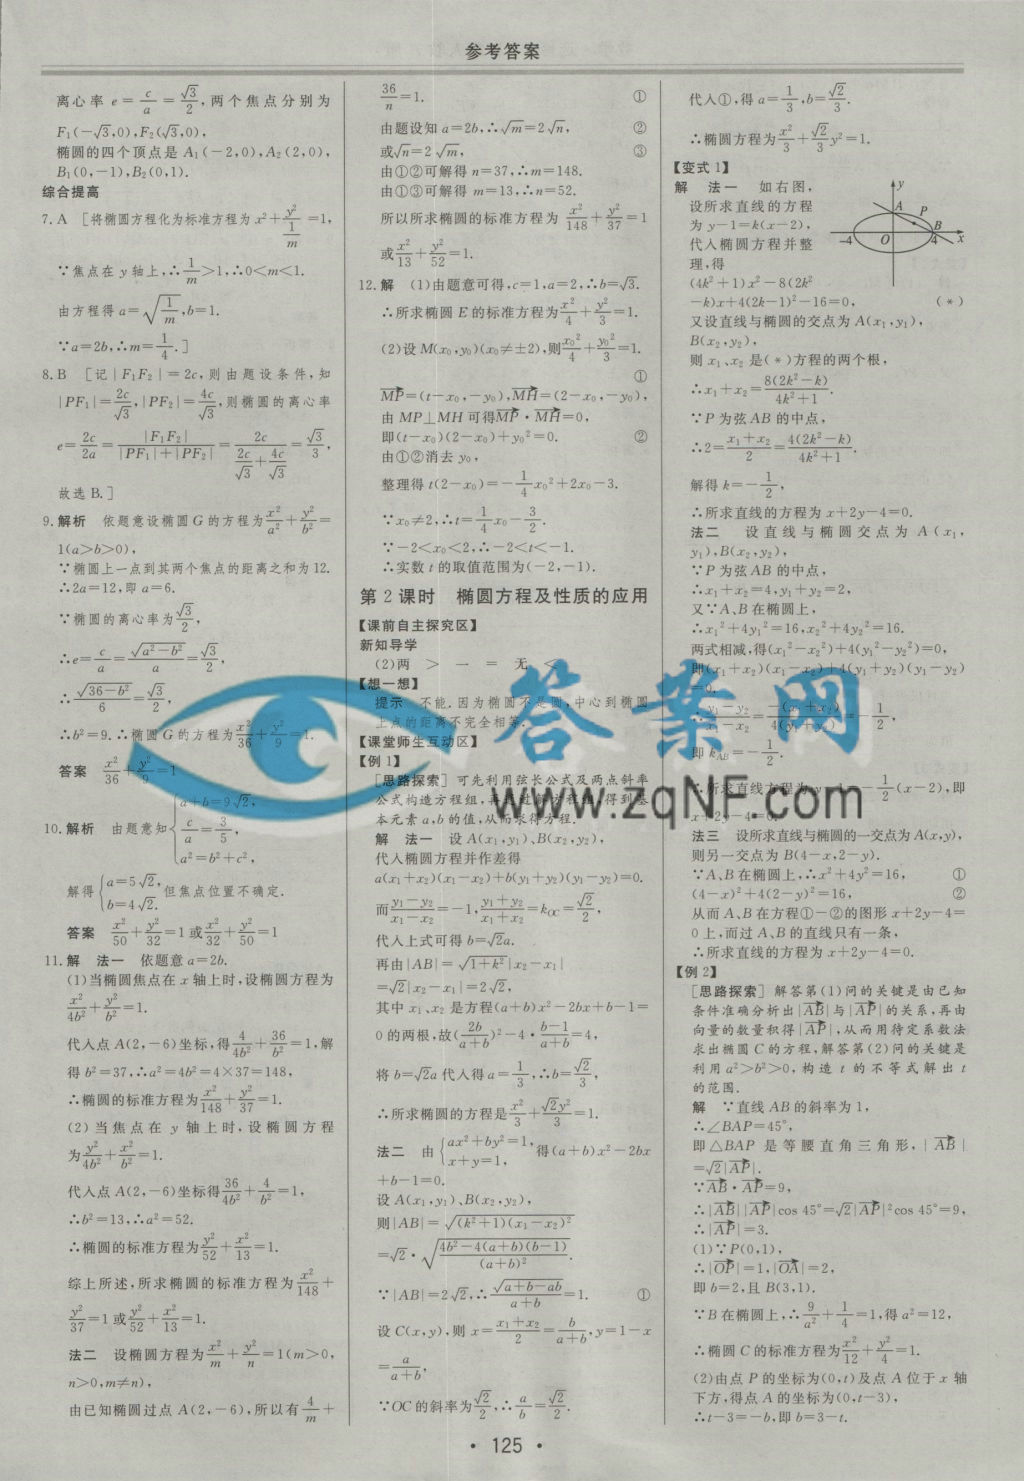 参考答案
离心率 e=c/a=√3/2,两个焦点分别为
F₁(-√3,0),F₂(√3,0),
椭圆的四个顶点是 A₁(-2,0),A₂(2,0),
B₁(0,-1),B₂(0,1).
综合提高
7.A [将椭圆方程化为标准方程为 x²+y²/(1/m)=1,
∵焦点在 y 轴上,∴1/m>1,∴0<m<1.
由方程得 a=√(1/m),b=1.
∵a=2b,∴m=1/4.]
8.B [记|F₁F₂|=2c,则由题设条件,知
|PF₁|=2c/√3,|PF₂|=4c/√3,则椭圆的离心率
e=2c/2a=|F₁F₂|/(|PF₁|+|PF₂|)=2c/(2c/√3+4c/√3)=√3/3,
故选 B.]
9.解析 依题意设椭圆 G 的方程为x²/a²+y²/b²=
1(a>b>0),
∵椭圆上一点到其两个焦点的距离之和为 12.
∴2a=12,即 a=6.
∵椭圆的离心率为√3/2,
∴e=c/a=√(a²-b²)/a=√3/2,
∴√(36-b²)/6=√3/2,
∴b²=9.∴椭圆 G 的方程为x²/36+y²/9=1.
答案 x²/36+y²/9=1
10.解析 由题意知{a+b=9√2, c/a=3/5, a²=b²+c²,
解得{a=5√2, b=4√2.但焦点位置不确定.
答案 x²/50+y²/32=1 或x²/32+y²/50=1
11.解 法一 依题意 a=2b.
(1)当椭圆焦点在 x 轴上时,设椭圆方程为
x²/4b²+y²/b²=1.
代入点 A(2,-6)坐标,得4/4b²+36/b²=1,解
得 b²=37,∴a²=4b²=4×37=148,
∴椭圆的标准方程为x²/148+y²/37=1.
(2)当焦点在 y 轴上时,设椭圆方程
为y²/4b²+x²/b²=1.
代入点 A(2,-6)坐标得36/4b²+4/b²=1,
∴b²=13,∴a²=52.
∴椭圆的标准方程为y²/52+x²/13=1.
综上所述,所求椭圆的标准方程为x²/148+
y²/37=1 或y²/52+x²/13=1.
法二 设椭圆方程为x²/m+y²/n=1(m>0,
n>0,m≠n),
由已知椭圆过点 A(2,-6),所以有4/m+
36/n=1. ①
由题设知 a=2b,∴√m=2√n, ②
或√n=2√m, ③
由①②可解得 n=37,∴m=148.
由①③可解得 m=13,∴n=52.
所以所求椭圆的标准方程为 x²/148+y²/37=1
或x²/13+y²/52=1.
12.解 (1)由题意可得,c=1,a=2,∴b=√3.
∴所求椭圆 E 的标准方程为x²/4+y²/3=1.
(2)设 M(x₀,y₀)(x₀≠±2),则x₀²/4+y₀²/3=1.
①
MP=(t-x₀,-y₀),MH=(2-x₀,-y₀),
由 MP⊥MH 可得MP·MH=0,
即(t-x₀)(2-x₀)+y₀²=0. ②
由①②消去 y₀,
整理得 t(2-x₀)=-1/4x₀²+2x₀-3.
∵x₀≠2,∴t=1/4x₀-3/2.
∵-2<x₀<2,∴-2<t<-1.
∴实数 t 的取值范围为(-2,-1).
第 2 课时 椭圆方程及性质的应用
【课前自主探究区】
新知导学
(2)两 > 一 = 无 <
【想一想】
提示 不能.因为椭圆不是圆,中心到椭圆
上点的距离不完全相等.
【课堂师生互动区】
【例 1】
[思路探索] 可先利用弦长公式及两点斜率
公式构造方程组,再通过解方程组,得到基
本元素 a,b 的值,从而求得方程.
解 法一 设 A(x₁,y₁)、B(x₂,y₂),
代入椭圆方程并作差得
a(x₁+x₂)(x₁-x₂)+b(y₁+y₂)(y₁-y₂)=0.
而(y₁-y₂)/(x₁-x₂)=-1,(y₁+y₂)/(x₁+x₂)=k_OC=√2/2,
代入上式可得 b=√2a.
再由|AB|=√(1+k²)|x₂-x₁|
=√2|x₂-x₁|=2√2,
其中 x₁、x₂ 是方程(a+b)x²-2bx+b-1=
0 的两根,故(2b/(a+b))²-4·(b-1)/(a+b)=4,
将 b=√2a 代入得 a=1/3,∴b=√2/3,
∴所求椭圆的方程是x²/3+√2y²/3=1.
法二 由{ax²+by²=1, x+y=1, 得(a+b)x²-2bx
+b-1=0.
设 A(x₁,y₁)、B(x₂,y₂),
则|AB|=√((k²+1)(x₁-x₂)²)
=√2·√((4b²-4(a+b)(b-1))/(a+b)²).
∵|AB|=2√2,∴√(a+b-ab)/(a+b)=1. ①
设 C(x,y),则 x=(x₁+x₂)/2=b/(a+b),y=1-x
=a/(a+b),
∵OC 的斜率为√2/2,∴a/b=√2/2.
代入①,得 a=1/3,b=√2/3.
∴椭圆方程为x²/3+√2/3y²=1.
【变式 1】
解 法一 如右图,
设所求直线的方程
为 y-1=k(x-2),
代入椭圆方程并整
理,得
y
A
P
B
-4
O
4
x
(4k²+1)x²-8(2k²
-k)x+4(2k-1)²-16=0, (*)
又设直线与椭圆的交点为 A(x₁,y₁),
B(x₂,y₂),
则 x₁、x₂ 是(*)方程的两个根,
∴x₁+x₂=8(2k²-k)/(4k²+1).
∵P 为弦 AB 的中点,
∴2=(x₁+x₂)/2=4(2k²-k)/(4k²+1).
解得 k=-1/2,
∴所求直线的方程为 x+2y-4=0.
法二 设直线与椭圆交点为 A(x₁,
y₁),B(x₂,y₂),
∵P 为弦 AB 的中点,
∴x₁+x₂=4,y₁+y₂=2,
又∵A、B 在椭圆上,
∴x₁²+4y₁²=16,x₂²+4y₂²=16.
两式相减,得(x₁²-x₂²)+4(y₁²-y₂²)=0,
即(x₁+x₂)(x₁-x₂)+4(y₁+y₂)(y₁-y₂)
=0.
∴(y₁-y₂)/(x₁-x₂)=-(x₁+x₂)/4(y₁+y₂)=-1/2,
即 k_AB=-1/2.
∴所求直线方程为 y-1=-1/2(x-2),即
x+2y-4=0.
法三 设所求直线与椭圆的一交点为 A(x,y),
则另一交点为 B(4-x,2-y).
∵A、B 在椭圆上,∴x²+4y²=16, ①
(4-x)²+4(2-y)²=16, ②
从而 A、B 在方程①-②的图形 x+2y-4=
0 上,而过 A、B 的直线只有一条,
∴所求直线的方程为 x+2y-4=0.
【例 2】
[思路探索] 解答第(1)问的关键是由已知
条件准确分析出|AB|与|AP|的关系,再由
向量的数量积得|AP|,从而用待定系数法
求出椭圆 C 的方程,解答第(2)问的关键是
利用 a²>b²>0,构造 t 的不等式解出 t
的范围.
解 ∵直线 AB 的斜率为 1,
∴∠BAP=45°,
即△BAP 是等腰直角三角形,|AB|
=√2|AP|.
∵AB·AP=9,
∴|AB||AP|cos 45°=√2|AP|²cos 45°=9,
∴|AP|=3.
(1)∵P(0,1),
∴|OP|=1,|OA|=2,
即 b=2,且 B(3,1).
∵B 在椭圆上,∴9/a²+1/4=1,得 a²=12,
∴椭圆 C 的标准方程为x²/12+y²/4=1.
(2)由点 P 的坐标为(0,t)及点 A 位于 x 轴
下方,得点 A 的坐标为(0,t-3),
∴t-3=-b,即 b=3-t.
答案网
www.zqNF.com
• 125 •